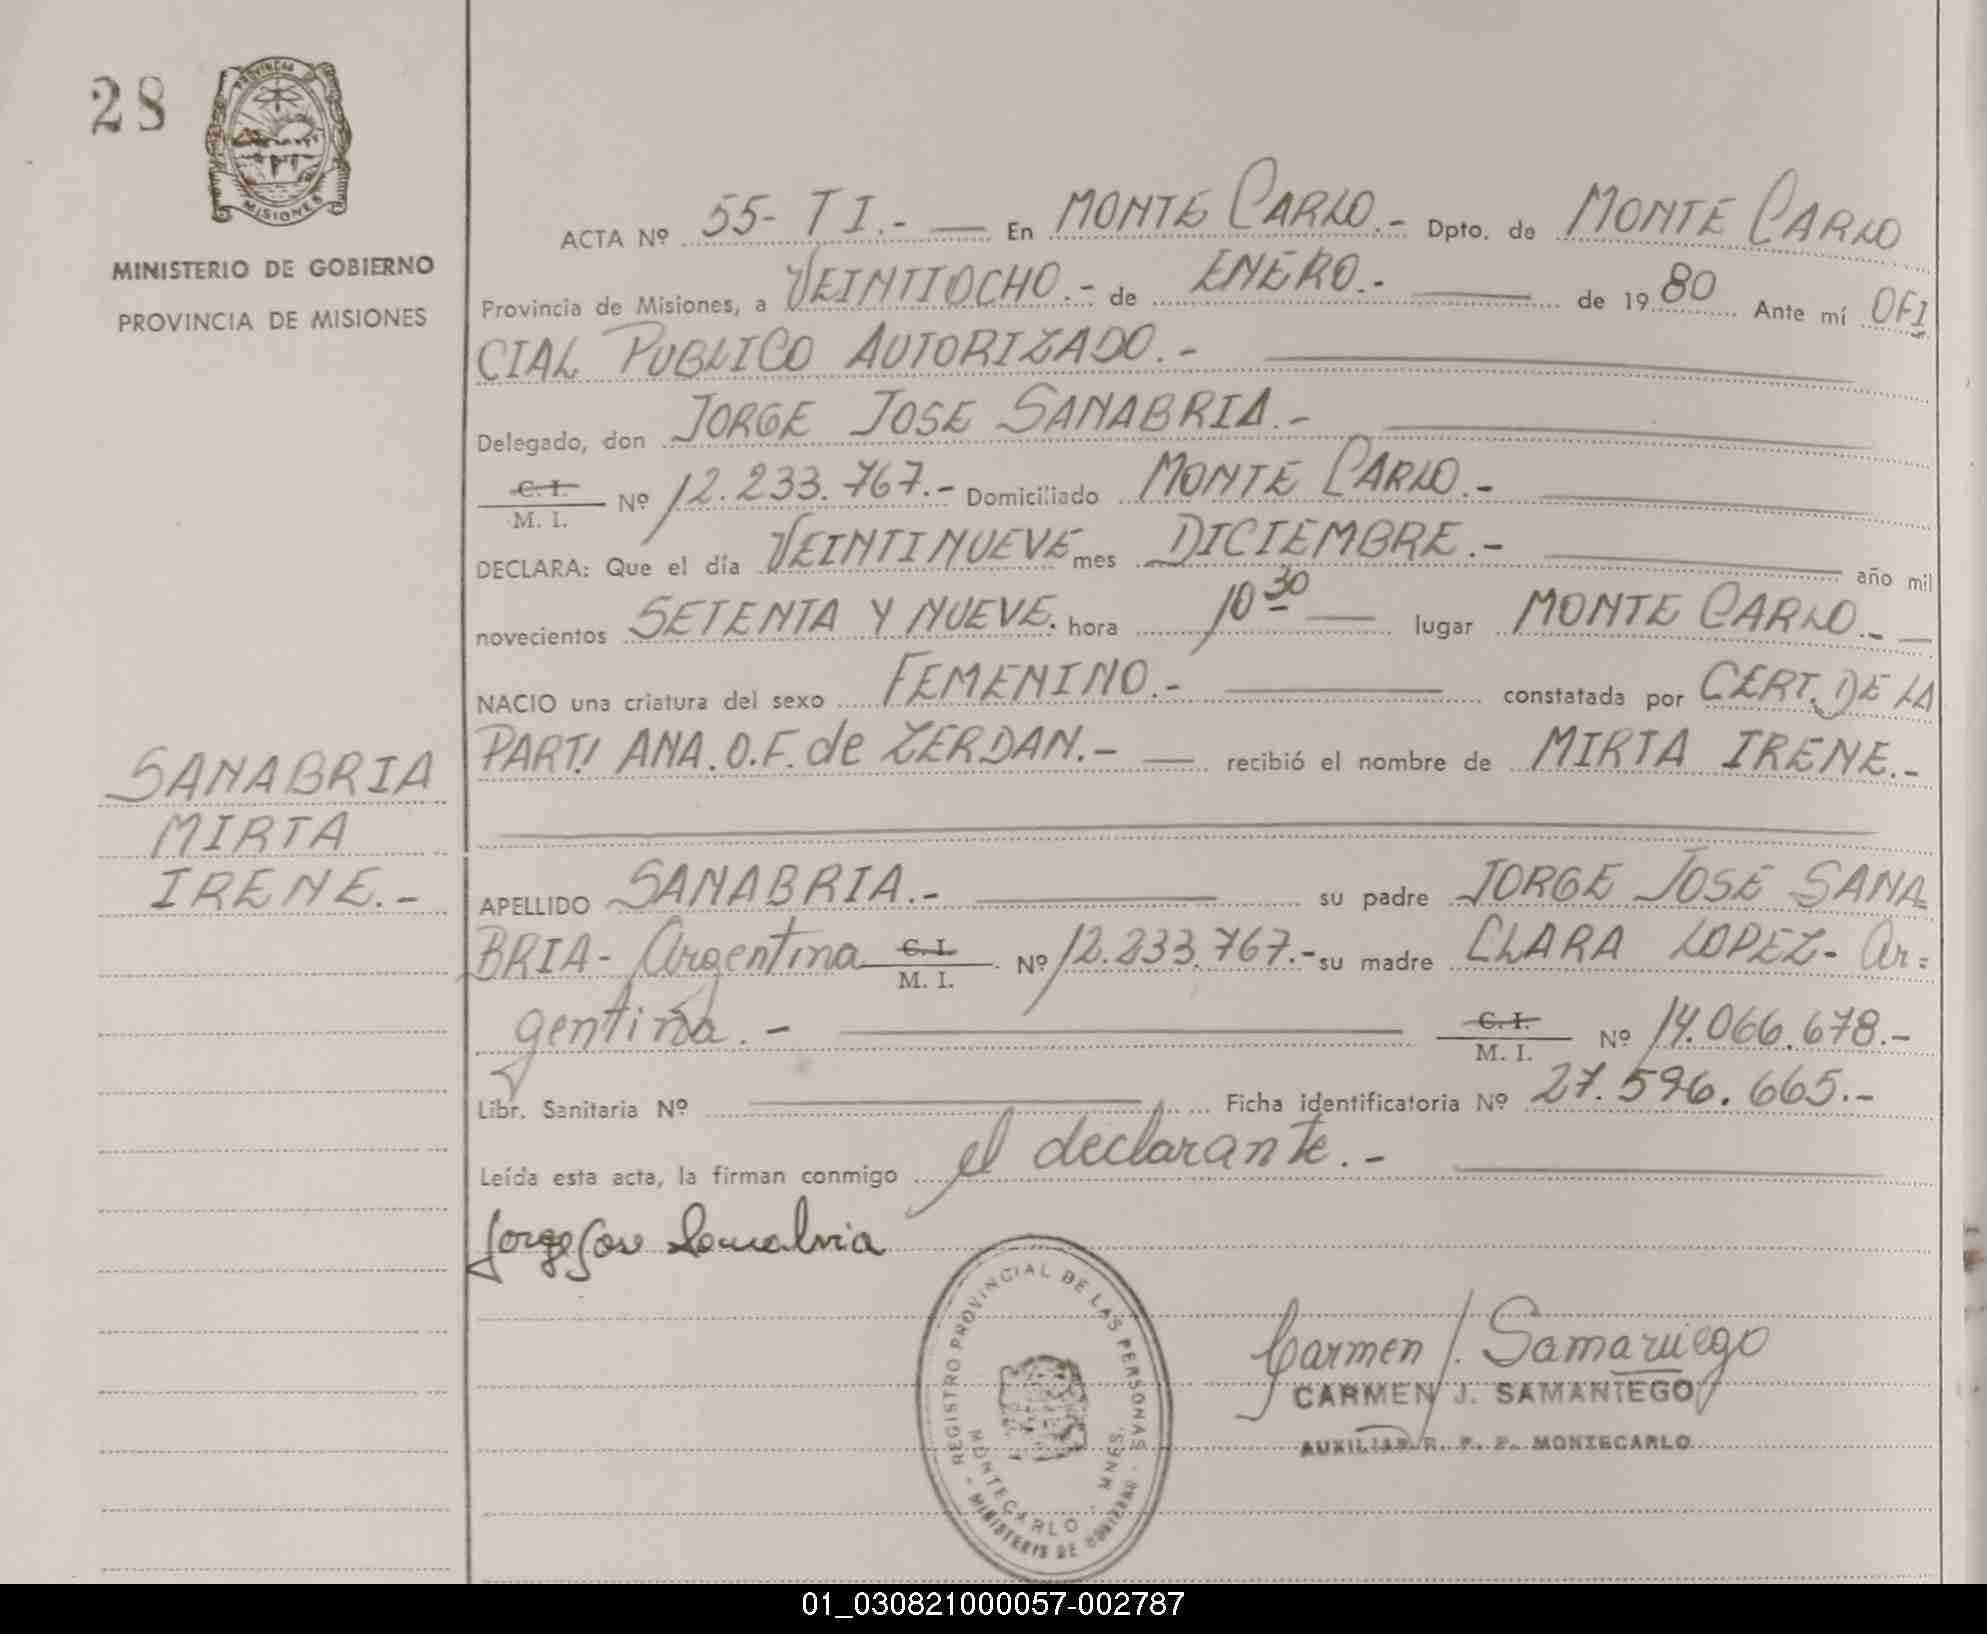 28
PROVINCIA DE
MISIONES
MINISTERIO DE GOBIERNO
PROVINCIA DE MISIONES
SANABRIA
MIRTA
IRENE.-
ACTA Nº 55- T I.- En MONTE CARLO.- Dpto. de MONTE CARLO
Provincia de Misiones, a VEINTIOCHO.- de ENERO.- de 19 80 Ante mí OFI
CIAL PUBLICO AUTORIZADO.-
Delegado, don JORGE JOSE SANABRIA.-
C. I.
M. I. Nº 12.233.767.- Domiciliado MONTE CARLO.-
DECLARA: Que el día VEINTINUEVE mes DICIEMBRE.- año mil
novecientos SETENTA Y NUEVE. hora 10 30 lugar MONTE CARLO.-
NACIO una criatura del sexo FEMENINO.- constatada por CERT. DE LA
PART! ANA. O.F. de ZERDAN.- recibió el nombre de MIRTA IRENE.-
APELLIDO SANABRIA.- su padre JORGE JOSE SANA
BRIA- Argentina C. I. M. I. Nº 12.233.767.- su madre CLARA LOPEZ- Ar=
gentina.- C. I. M. I. Nº 14.066.678.-
Libr. Sanitaria Nº Ficha identificatoria Nº 27.596.665.-
Leída esta acta, la firman conmigo el declarante.-
Jorge Jose Sanabria
REGISTRO PROVINCIAL DE LAS PERSONAS
MONTECARLO - MNES.
- MINISTERIO DE GOBIERNO -
Carmen J. Samaniego
CARMEN J. SAMANIEGO
AUXILIAR R. P. P. MONTECARLO
01_030821000057-002787